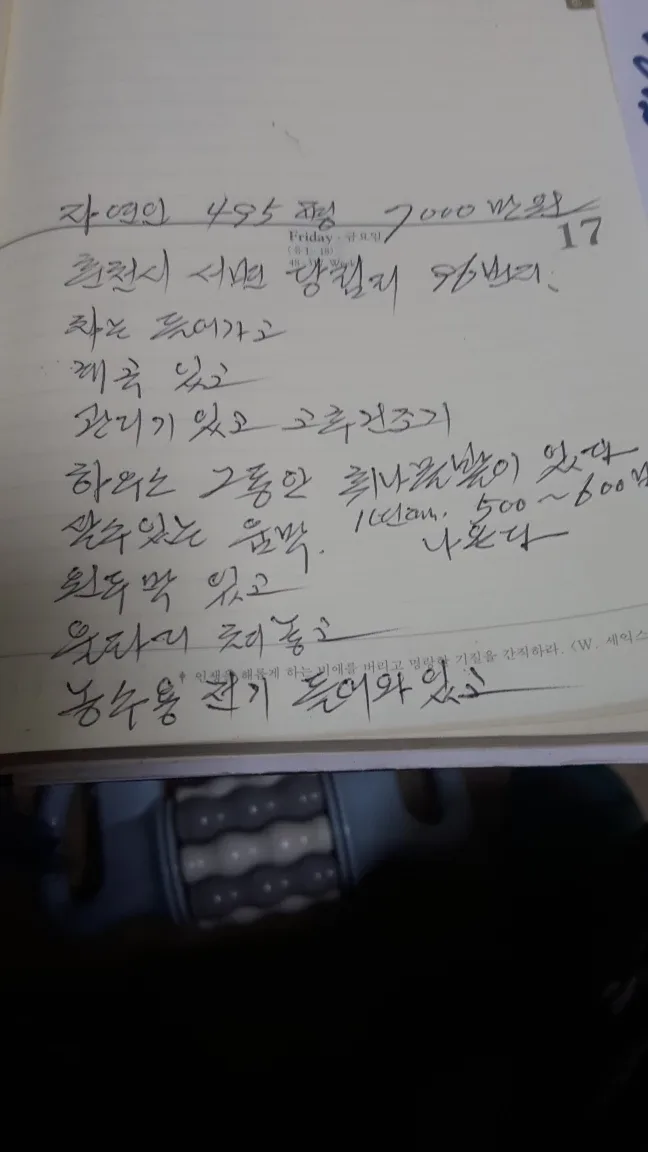 자연인 495평 7000만원
17
Friday · 금요일
서면 96번지.
차는 들어가고
계곡 있고
관리기 있고 고추건조기
하우스 그동안 취나물밭이 있다
살수있는 움막. 1년에. 500~600만
나온다
원두막 있고
울타리 쳐놓고
인생을 해롭게 하는 비애를 버리고 명랑한 기질을 간직하라. <W. 세익스
농수용 전기 들어와있고